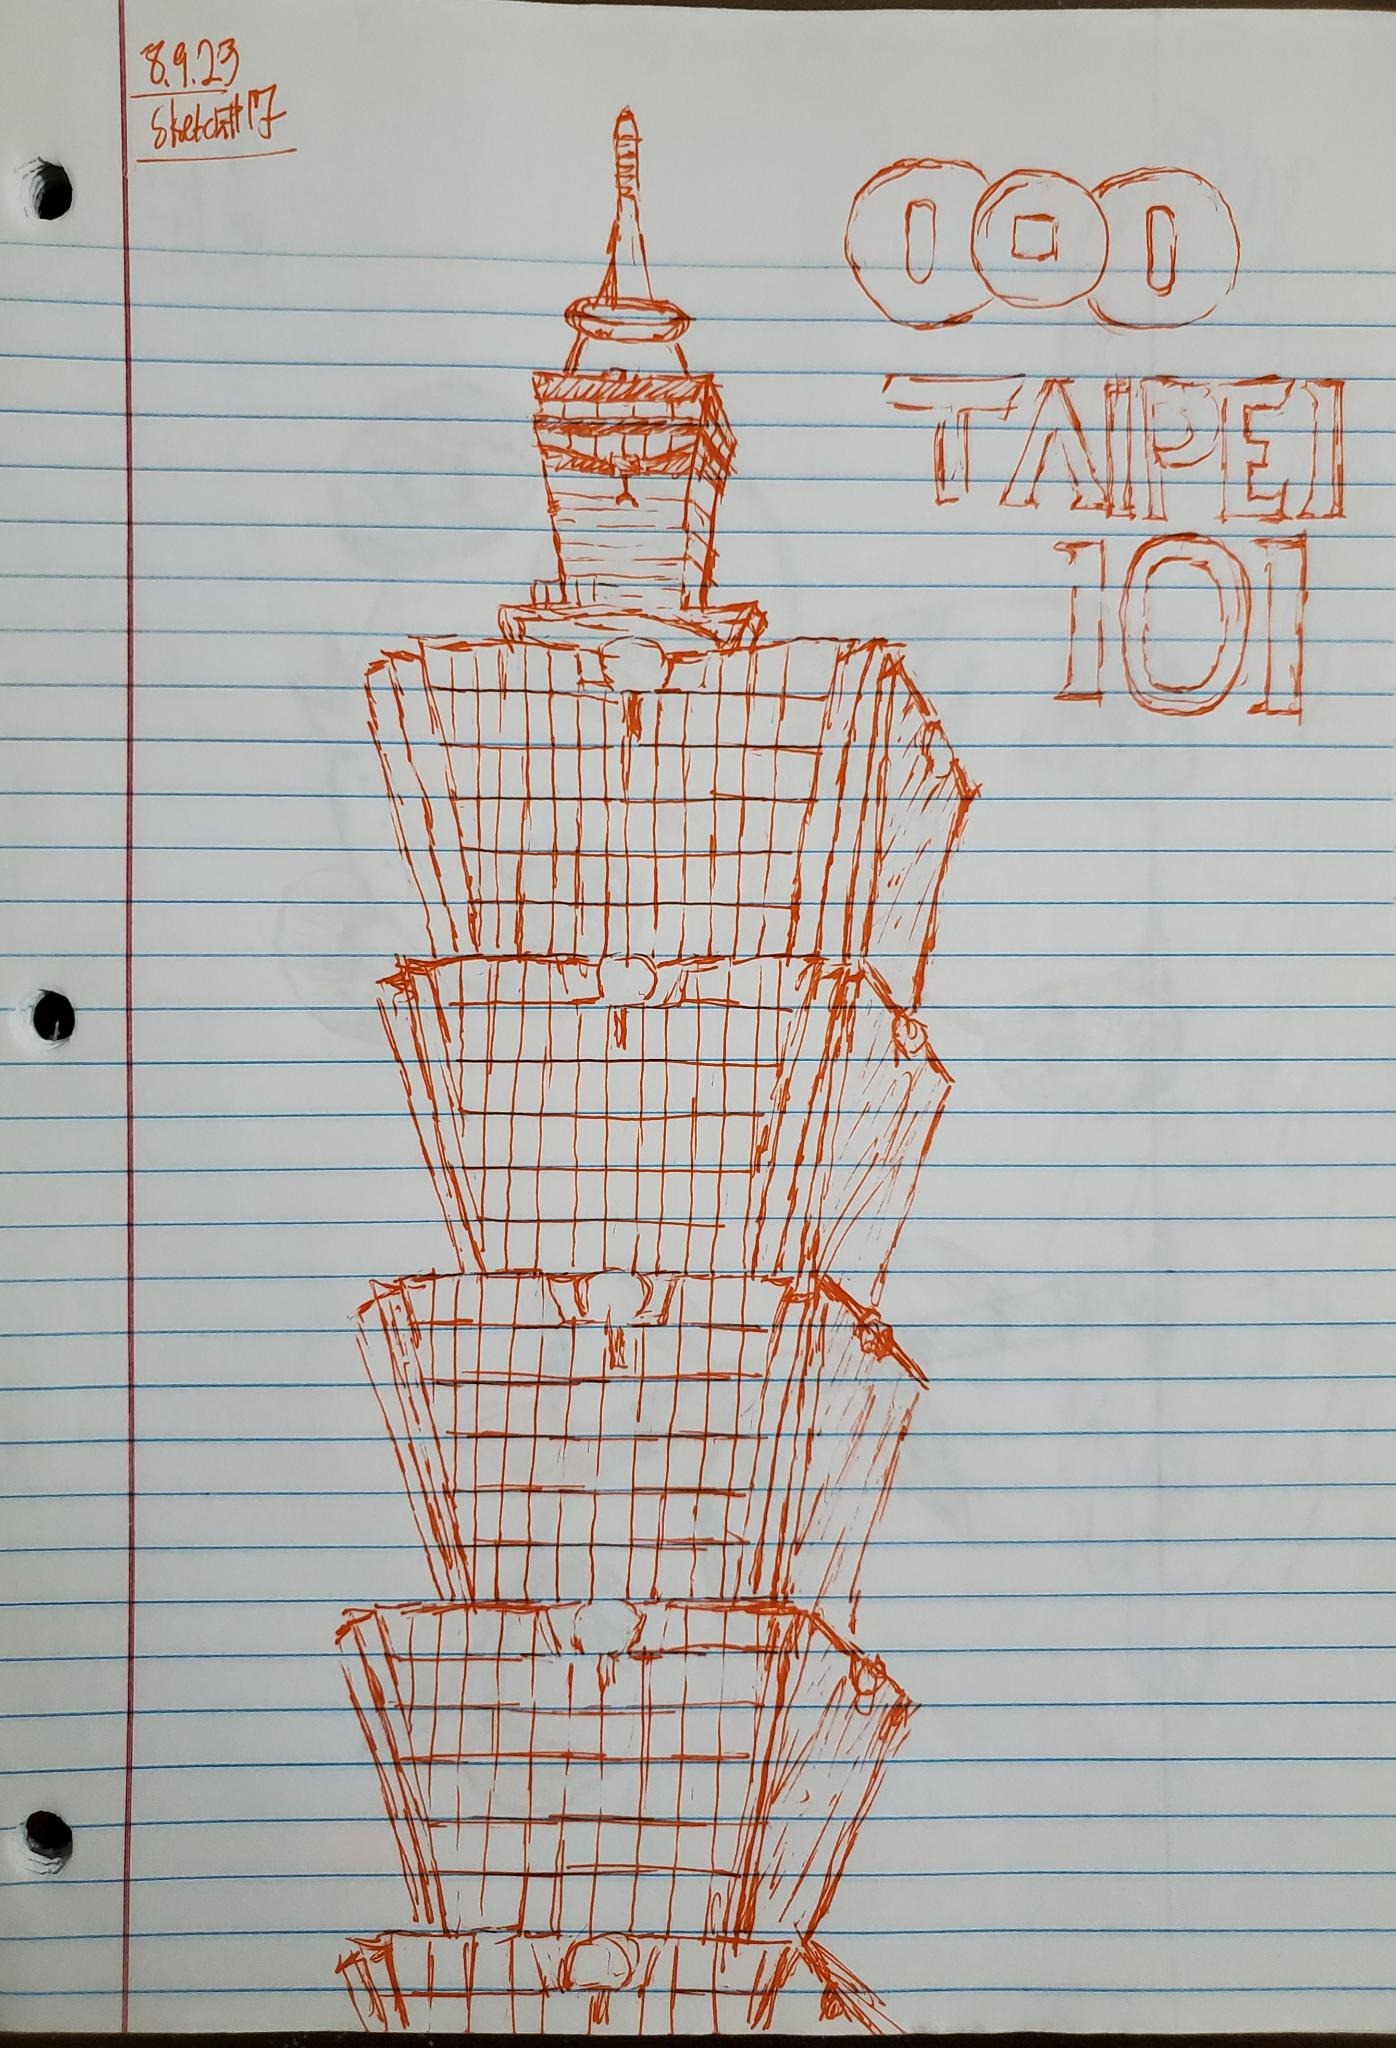 8.9.23
Sketch#17
TAIPEI
101